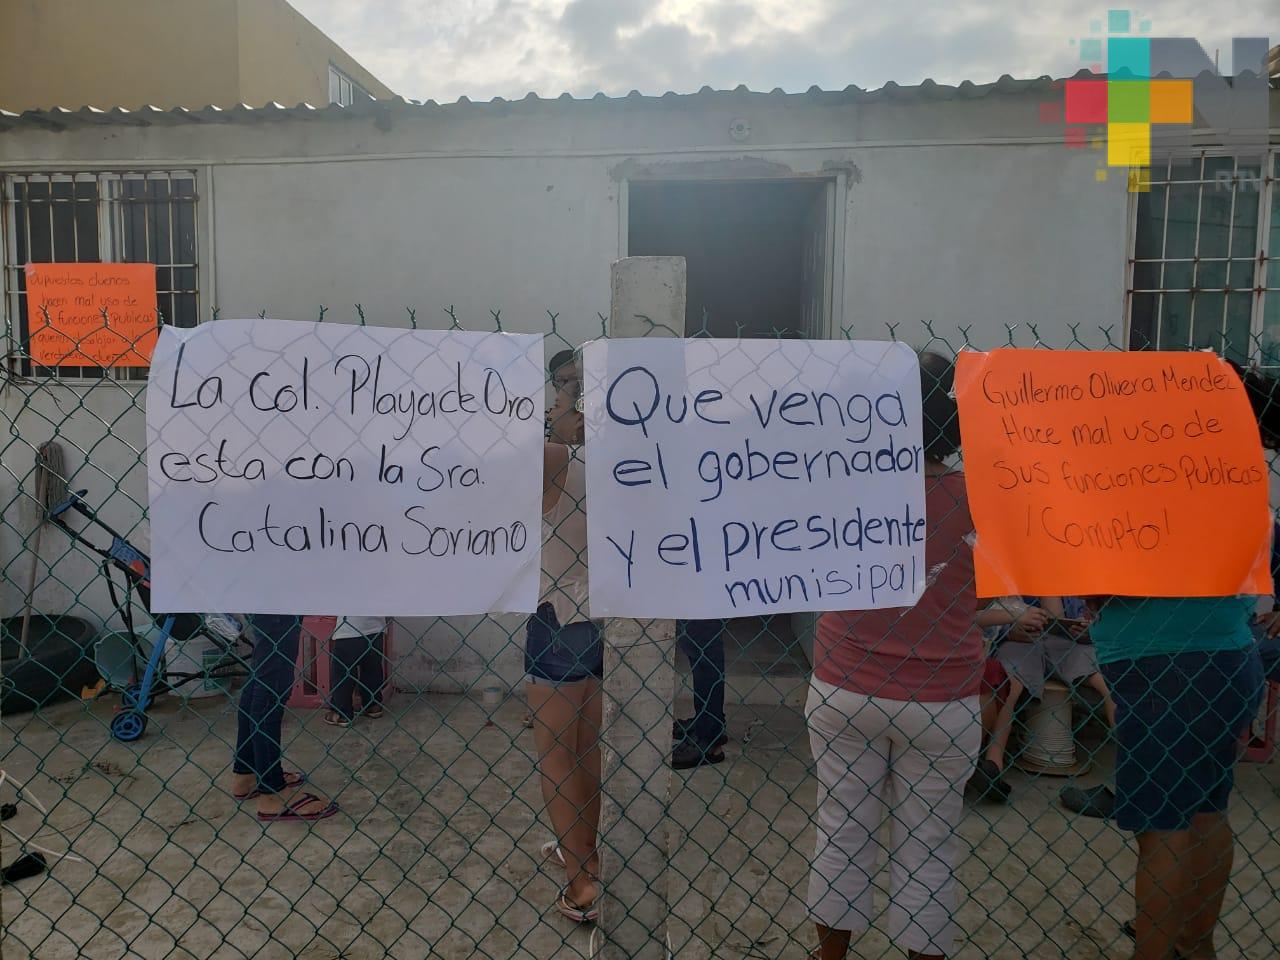 Supuestos dueños
hacen mal uso de
sus funciones publicas
quieren desalojar a
verdaderos dueños
La Col. Playa de Oro
esta con la Sra.
Catalina Soriano
Que venga
el gobernador
y el presidente
munisipal
Guillermo Olivera Mendez
Hace mal uso de
sus funciones Publicas
¡Corrupto!
RTV